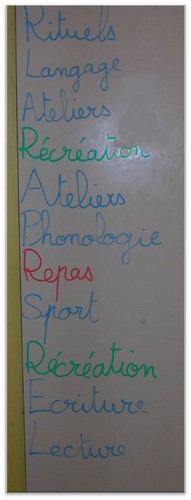 Rituels
Langage
Ateliers
Récréation
Ateliers
Phonologie
Repas
Sport
Récréation
Ecriture
Lecture